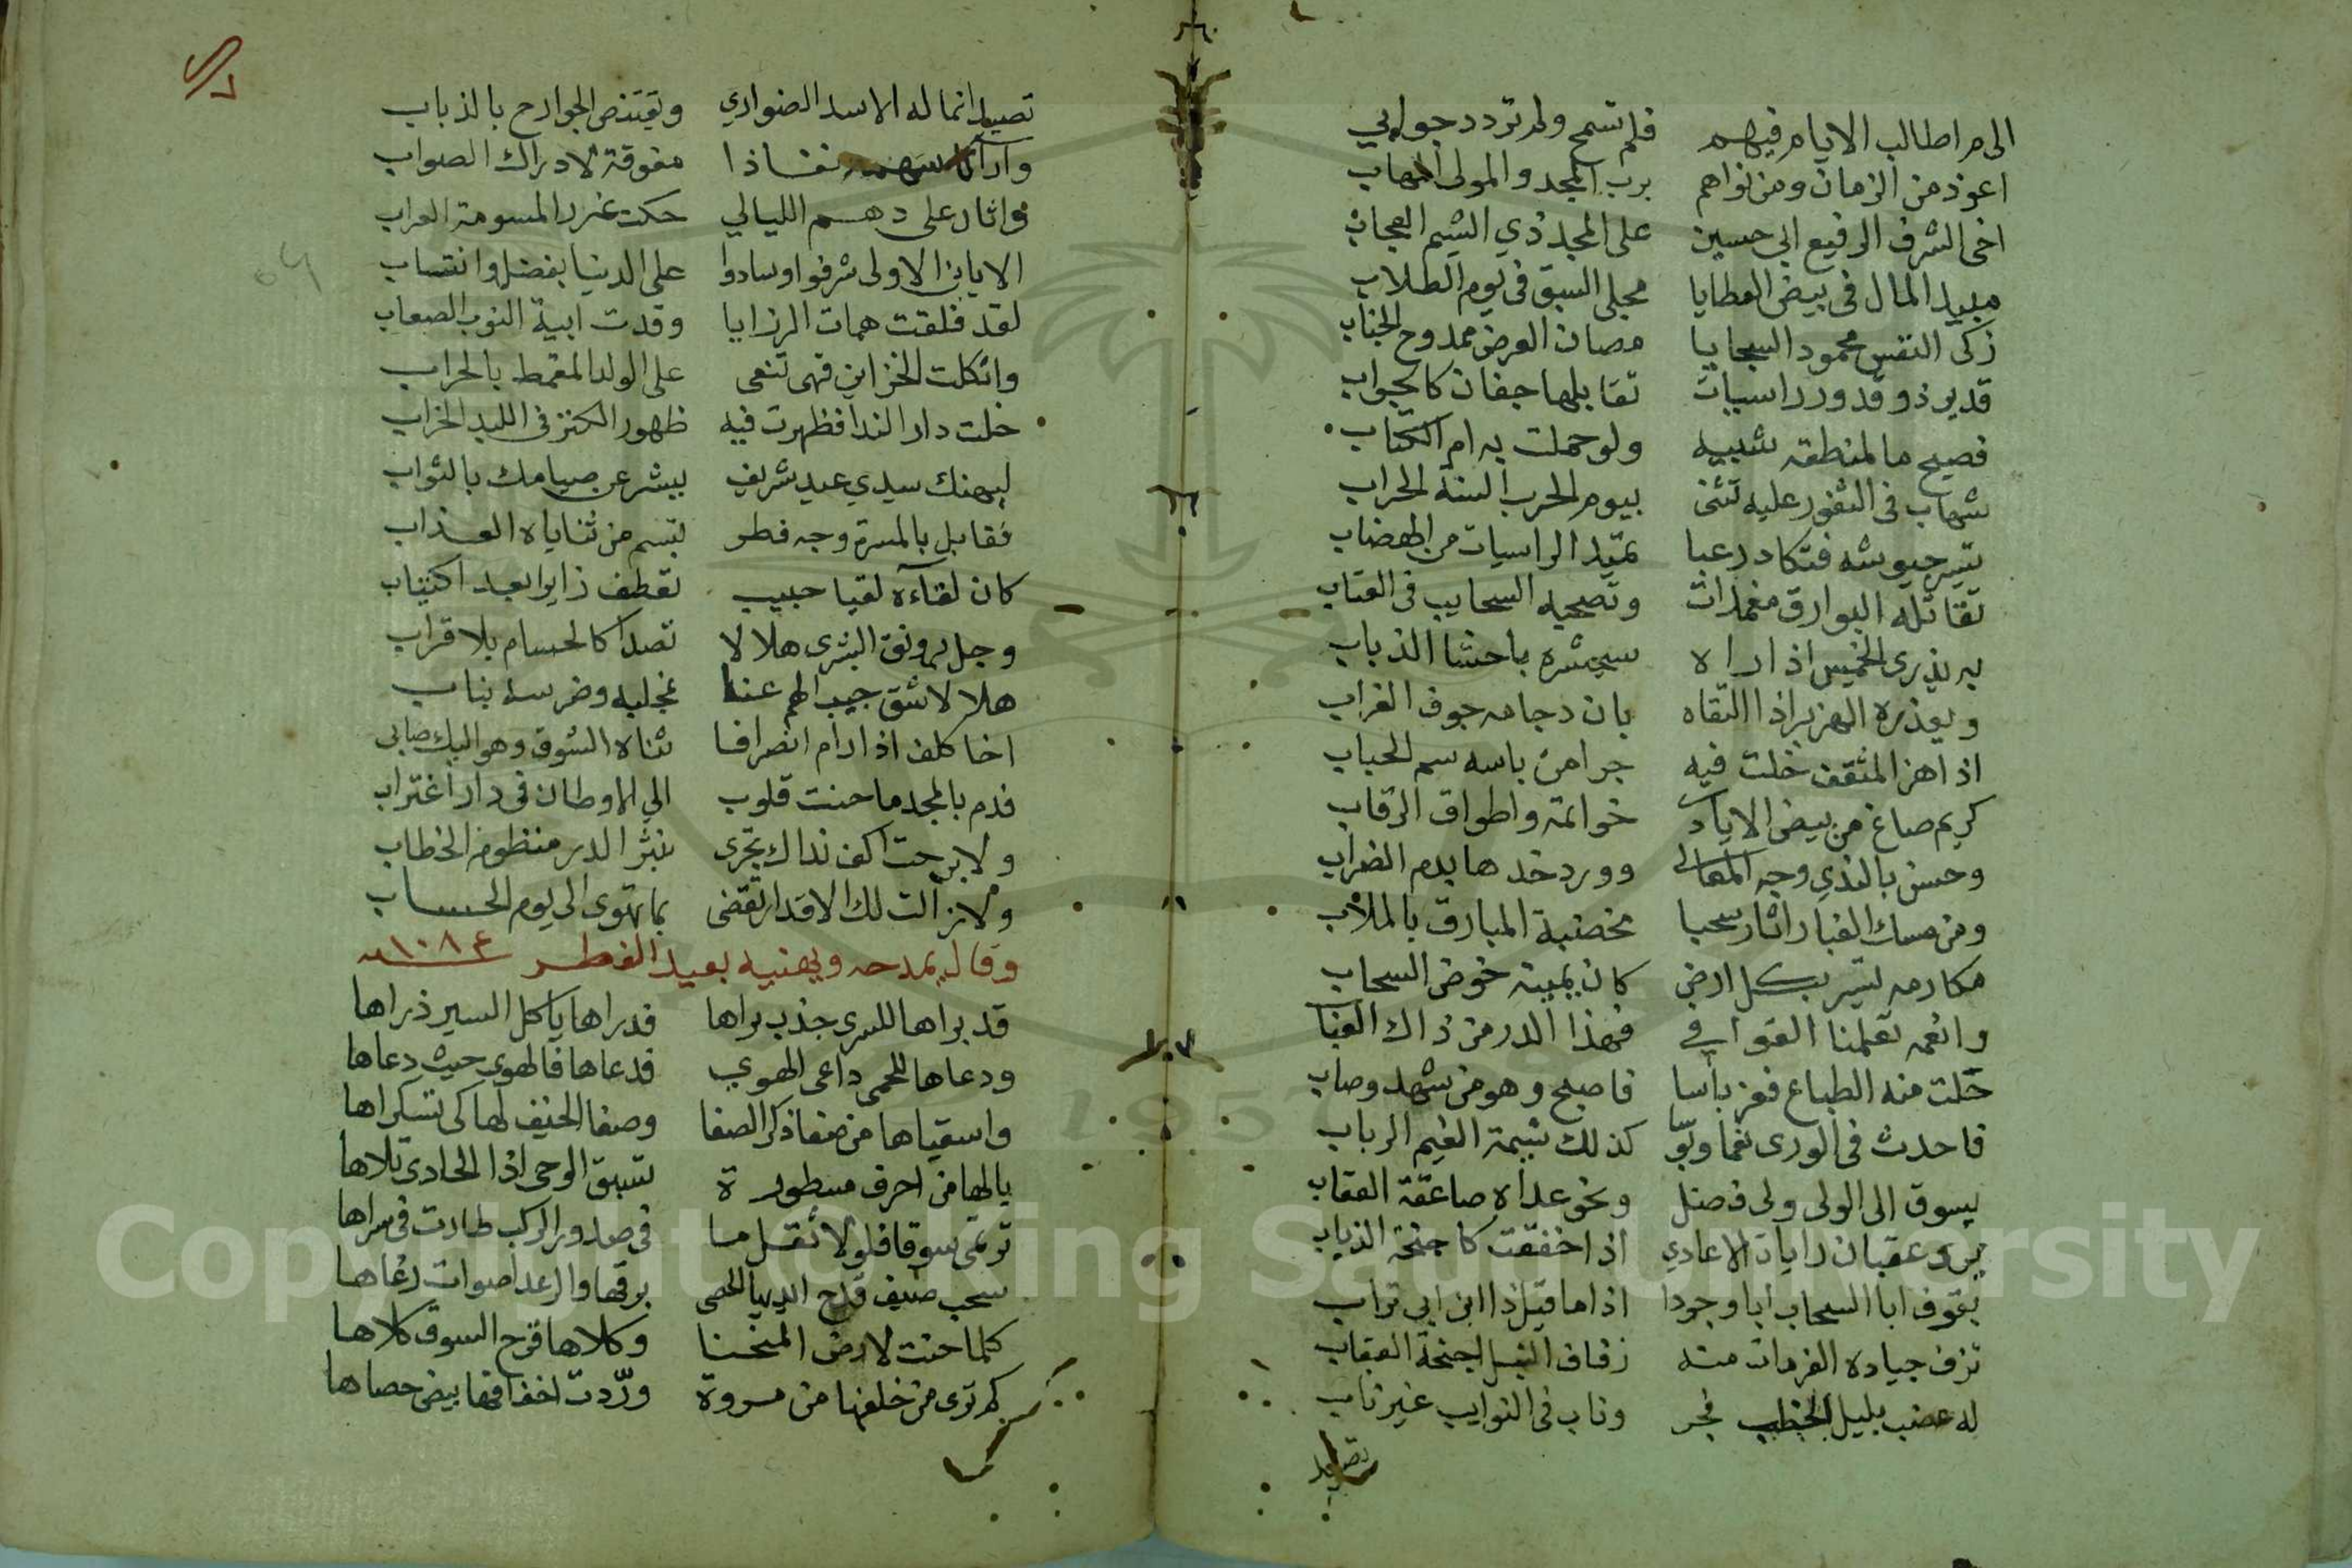 الى م اطالب الايام فيهم فلم تسمح ولم تردد جوابي
اعوذ من الزمان ومن نواهم برب المجد والمولى المهاب
اخى الشرف الرفيع ابى حسين على المجد ذي الشيم العجاب
مبيد المال فى بيض العطايا مجلى السبق فى يوم الطلاب
زكى النفس محمود السجايا مصان العرض ممدوح الجناب
قدير ذو قدور راسيات تقابلها جفان كالجواب
فصيح ما لمنطقه شبيه ولو حملت به ام الكتاب
شهاب فى الثغور عليه تثنى بيوم الحرب السنة الحراب
تسير جيوشه فتكاد رعبا تميد الراسيات من الهضاب
تقاتله البوارق مغمدات وتصحبه السحايب فى العتاب
به يذرى الخميس اذا راه سيحشره باحشا الذياب
ويعذره الهزبر اذا التقاه بان دجاه جوف الغراب
اذا هز المثقف خلت فيه جرا من باسه سم الحباب
كريم صاغ من بيض الاياد خواتمه واطواق الرقاب
وحسن بالندي وجه المعالى وورد خدها بدم الضراب
ومن مسك الغبار اثار سحبا مخضبة المبارق بالملاب
مكارمه تسير بكل ارض كان يمينه خوض السحاب
وانعمه تعلمنا القوافي فهذا الدر من ذاك العباب
حلت منه الطباع فعز باسا فاصبح وهو من شهد وصاب
فاحدث فى الورى نعما وبؤسا كذلك شيمة الغيم الرباب
يسوق الى الولى ولى فضل ونحو عداه صاعقة العقاب
يرى عقبان رايات الاعادي اذا خفقت كاجنحة الذباب
يفوق ابا السحاب ابا وجودا اذا ما قيل ذا ابن ابى تراب
تزف جياده العزمات منه زفاف النسر اجنحة العقاب
له عضب بليل الخطب فجر وناب فى النوايب غير ناب
تصيد
تصيد انما له الاسد الضواري وتقتنص الجوارح بالذباب
نفاذا مفوقة لادراك الصواب
واثار على دهم الليالي حكت غرر المسومة العراب
الا يابن الاولى شرفوا وسادوا على الدنيا بفضل وانتساب
لقد فلقت همات الرزايا وقدت ابية النوب الصعاب
واثكلت الخزاين فهى تنعى على الولد المقمط بالحراب
خلت دار الندا فظهرت فيه ظهور الكنز فى البلد الخراب
ليهنك سيدي عيد شريف يبشر عن صيامك بالثواب
فقابل بالمسرة وجه فطر تبسم من ثناياه العذاب
كان لقاءه لقيا حبيب تعطف زايرا بعد اكتئاب
وجل برونق البشرى هلالا تصدا كالحسام بلا قراب
هلالا شق جيب الهم عنا بمخلبه وضرسه بناب
اخا كلف اذا رام انصرافا ثناه الشوق وهو اليك صابى
فدم بالمجد ما حنت قلوب الى الاوطان فى دار اغتراب
ولا برحت اكف نداك تجرى بنثر الدر منظوم الخطاب
ولا زالت لك الاقدار تقضى بما تهوى الى يوم الحساب
وقال يمدحه ويهنيه بعيد الفطر سنة ١٠٨٤
قد براها للسرى جذب براها فدراها ياكل السير ذراها
ودعاها للحمى داعى الهوي فدعاها فالهوى حيث دعاها
واسقياها من صفا ذكر الصفا وصفا الخيف لها كى تسكراها
يالها من احرف مسطورة تسبق الوحى اذا الحادى تلاها
ترتمى شوقا فلولا ثقل ما فى صدور الركب طارت فى سراها
سحب صيف قدح ايديها الحصى برقها والرعد اصوات رغاها
كلما حنت لارض المنحنا وكلاها قرح الشوق كلاها
كم ترى من خلفها من مروة ورّدت اخفافها بيض حصاها